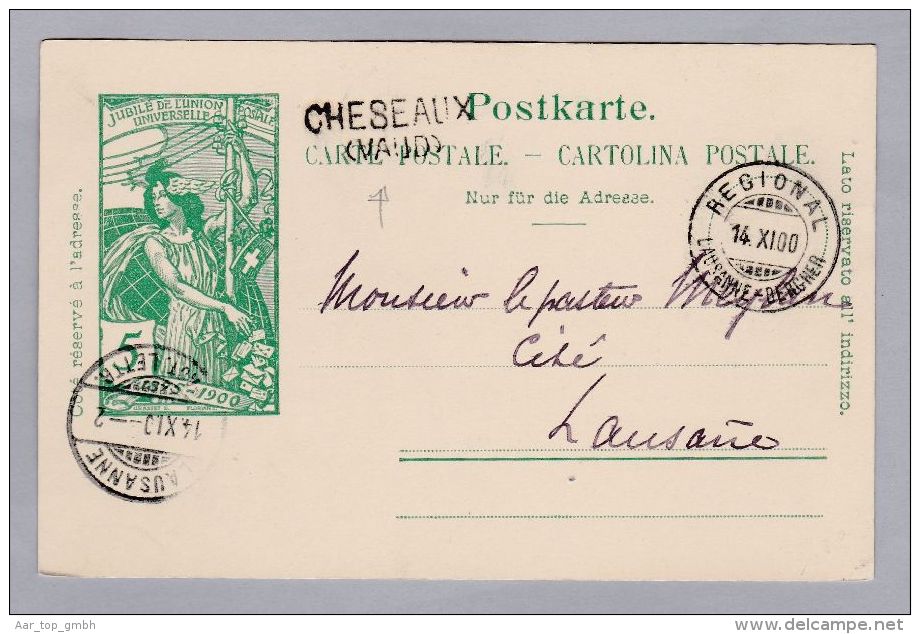 JUBILÉ DE L'UNION
POSTALE
UNIVERSELLE
CHESEAUX
(VAUD)
Postkarte.
CARTE POSTALE. — CARTOLINA POSTALE.
Nur für die Adresse.
Côté réservé à l'adresse.
Lato riservato all' indirizzo.
REGIONAL
14.XI00
LAUSANNE-BERCHER
Monsieur le pasteur
Cité
Lausanne
5
-1900
LAUSANNE
14.XI.0 —2
LETTR.
Aar_top_gmbh
www.delcampe.net